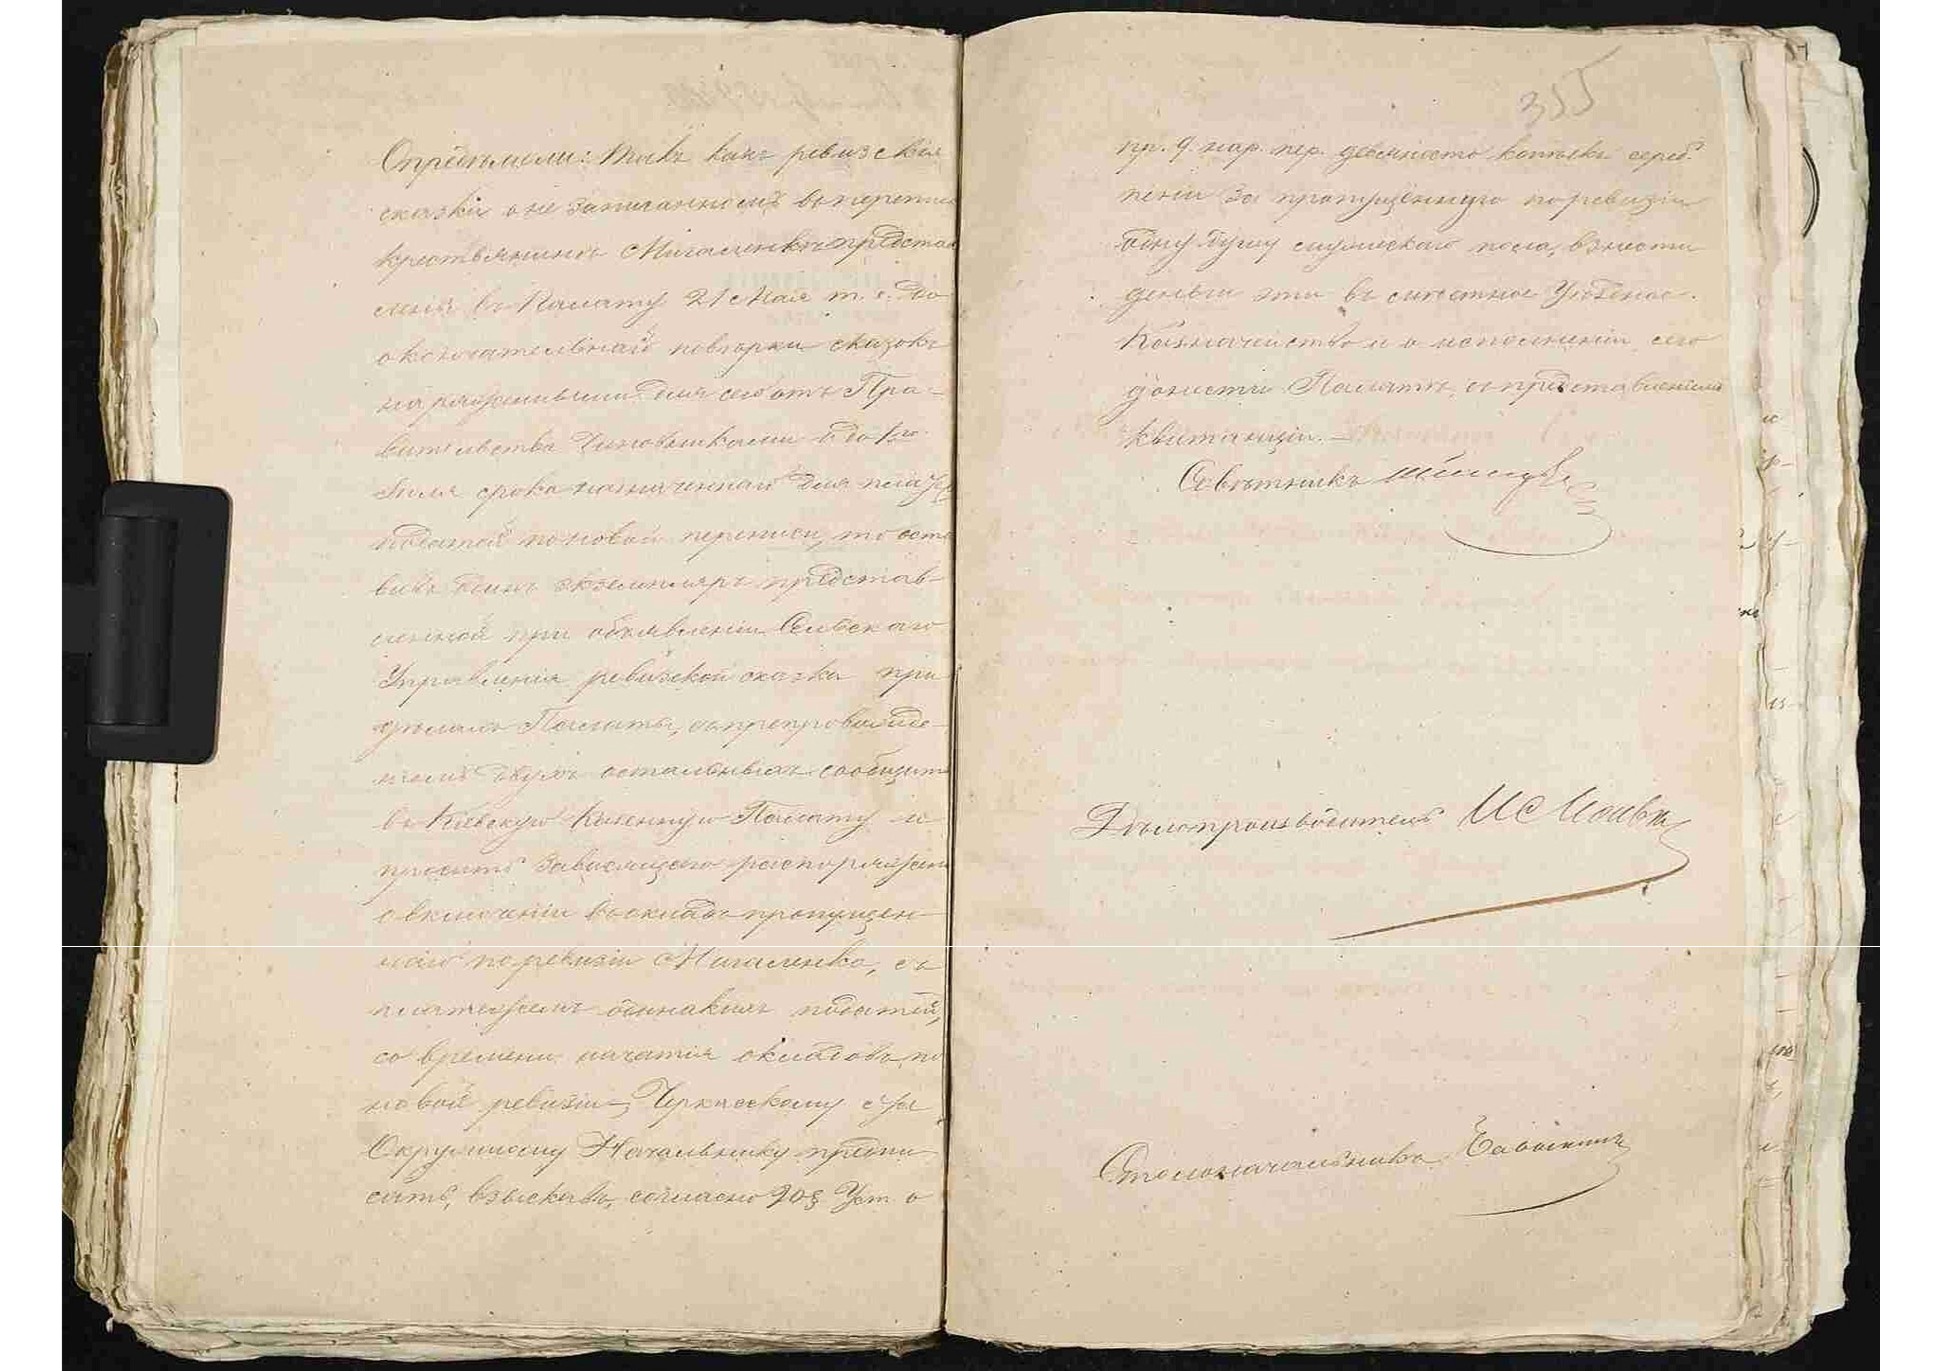 Опредѣлили: Такъ какъ ревизская
сказка о не записанномъ въ перепись
крестьянинѣ Мигаленкѣ представ
лена въ Палату 21 Мая т. г. до
окончательной повѣрки сказокъ
наряженными для сего отъ Пра-
вительства Чиновниками и до 1го
Іюля срока назначеннаго для платежа
податей по новой переписи, то оста
вивъ одинъ экземпляръ представ-
ленной при объявленіи Сельскаго
Управленія ревизской сказки при
дѣлахъ Палаты, съ препровожде-
ніемъ двухъ остальныхъ сообщить
въ Кіевскую Казенную Палату и
просить зависящаго распоряженія
о включеніи въ окладъ пропущен-
наго по ревизіи Мигаленка, съ
платежемъ одинакихъ податей,
со времени начатія окладовъ по
новой ревизіи, Черкасскому
Окружному Начальнику предпи
сать, взыскавъ, согласно 203 Уст. о
355
пр. 9. нар. пер. девяносто копѣекъ сереб.
пени за пропущенную по ревизіи
одну душу мужескаго пола, взнести
деньги эти въ мѣстное Уѣздное
Казначейство и о исполненіи сего
донести Палатѣ, съ представленіемъ
квитанціи.
Совѣтникъ
Дѣлопроизводитель
Столоначальникъ